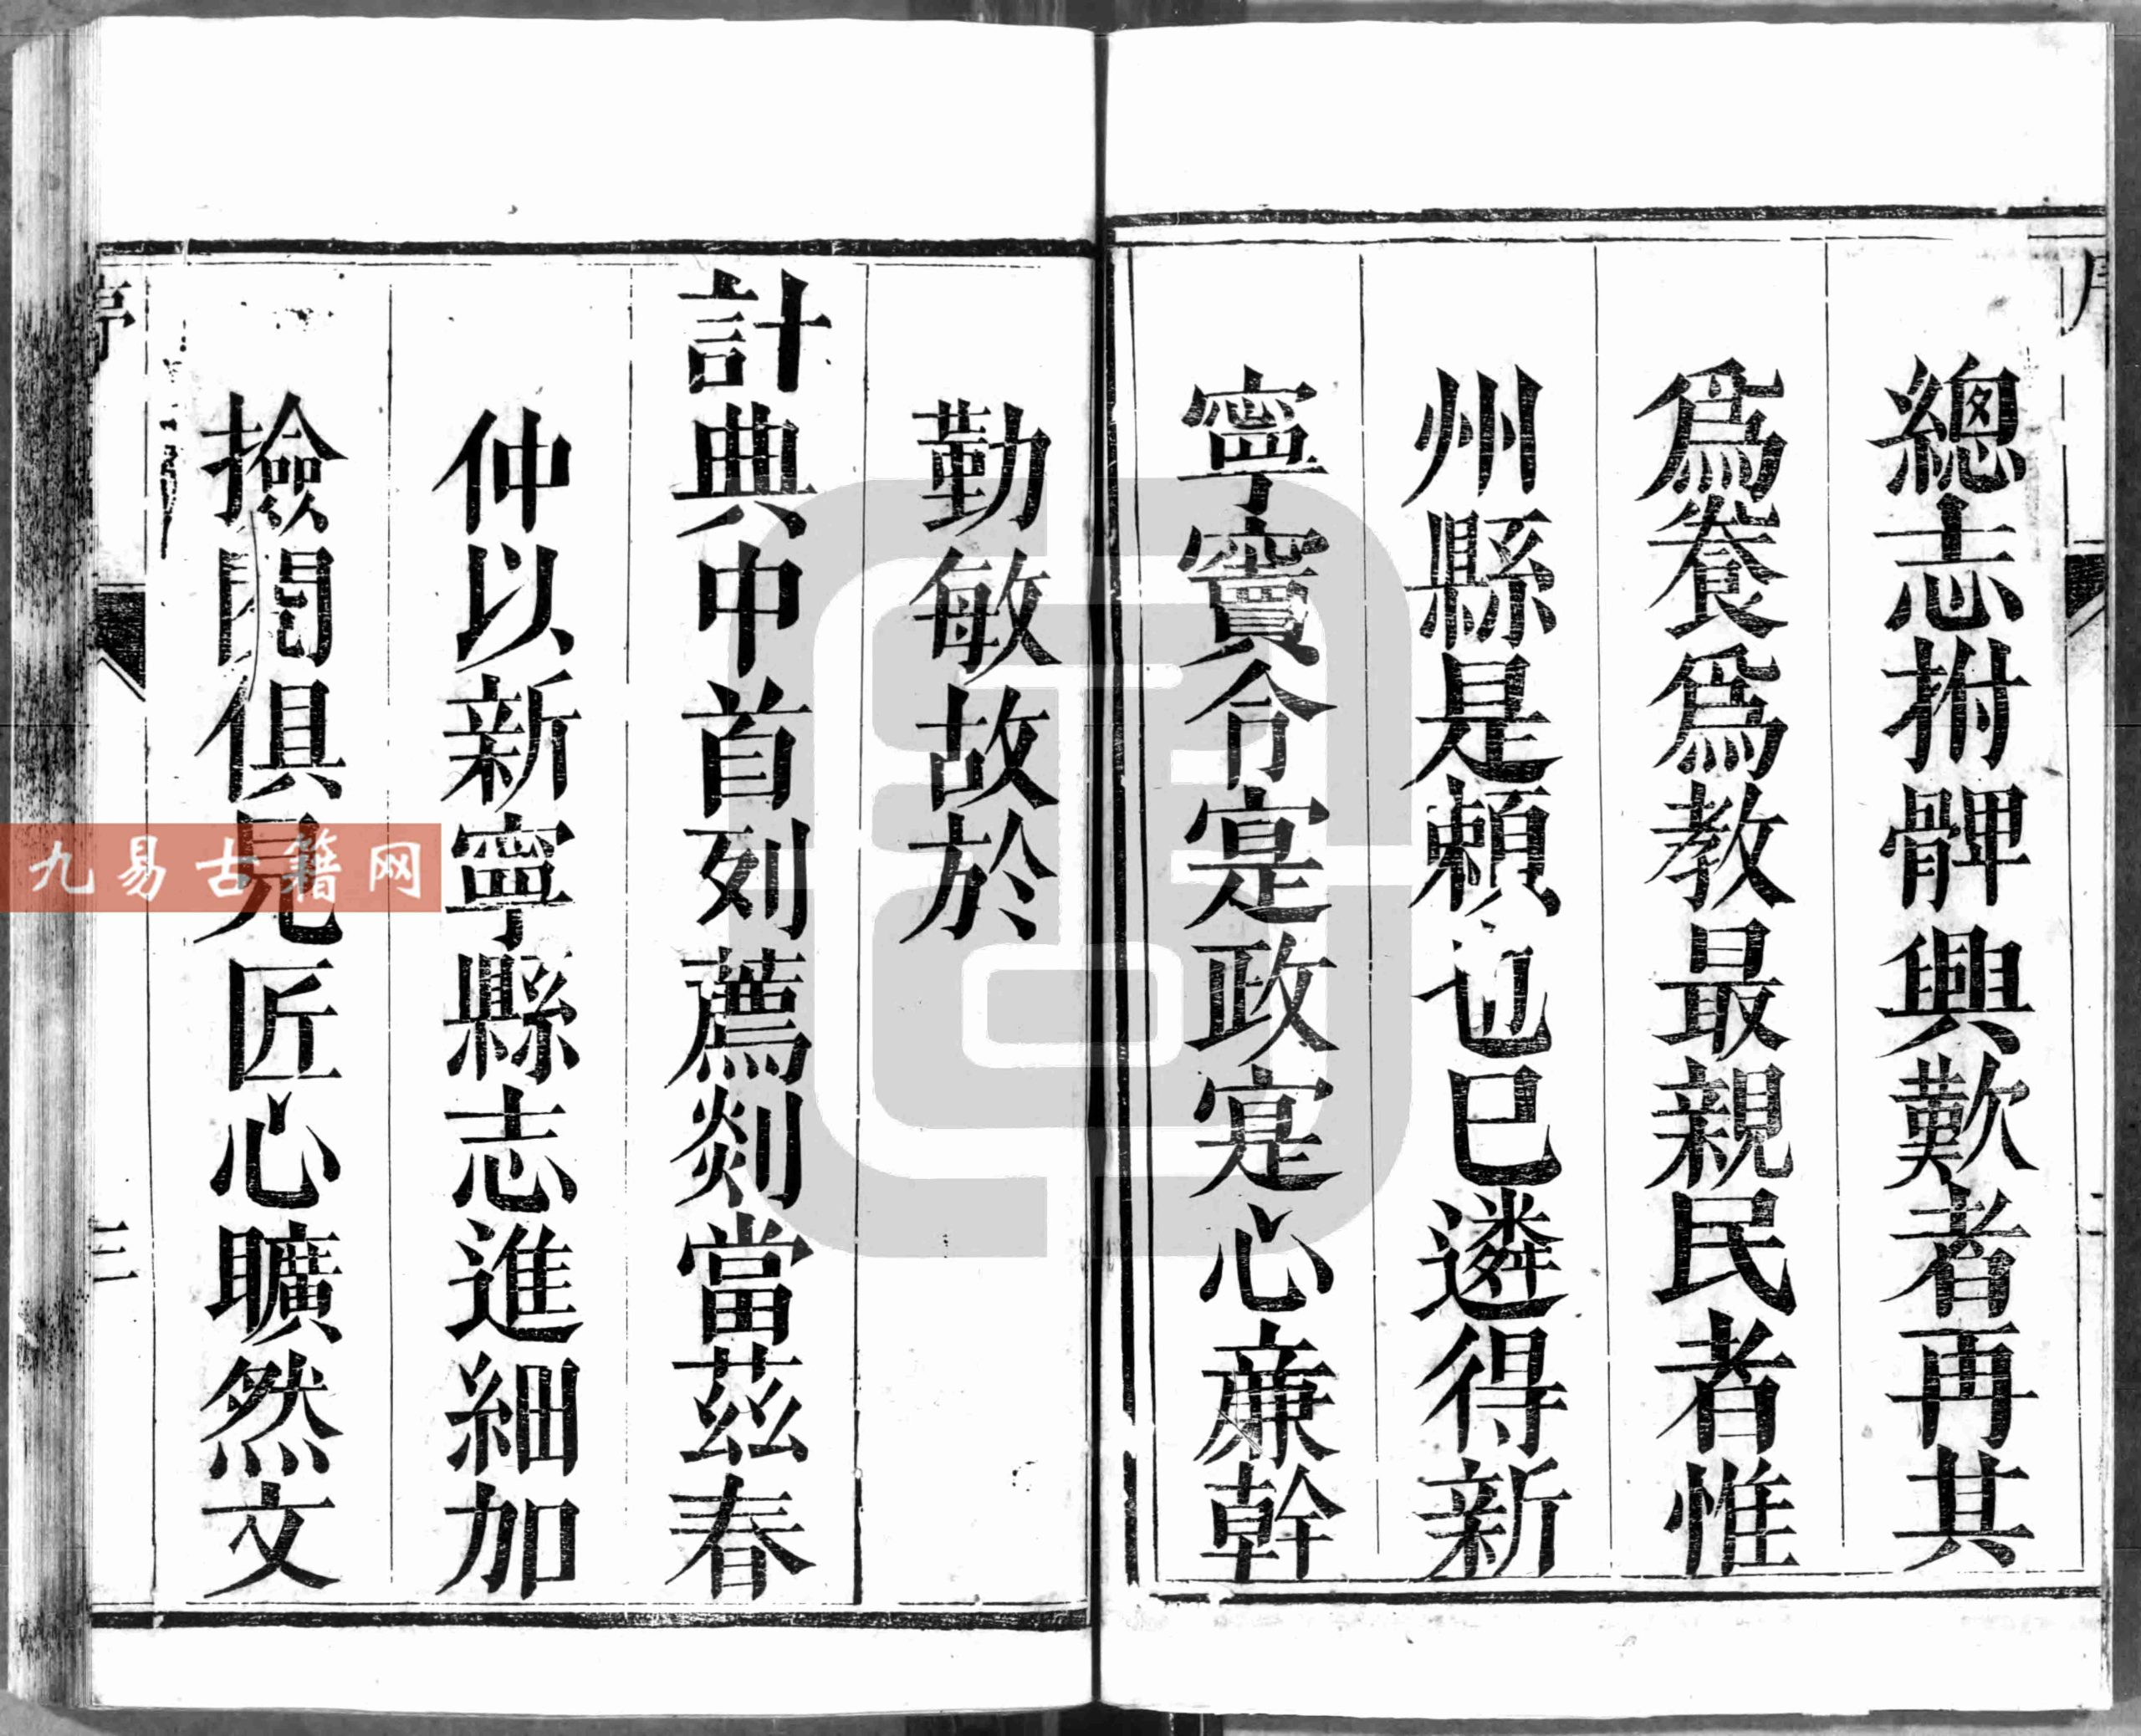 總志拊髀興歎者再其
爲養爲教最親民者惟
州縣是賴也巳遴得新
寧竇令寔政寔心亷幹
勤敏故於
計典中首列薦剡當茲春
仲以新寧縣志進細加
撿閱俱見匠心曠然文
序
三
九易古籍网